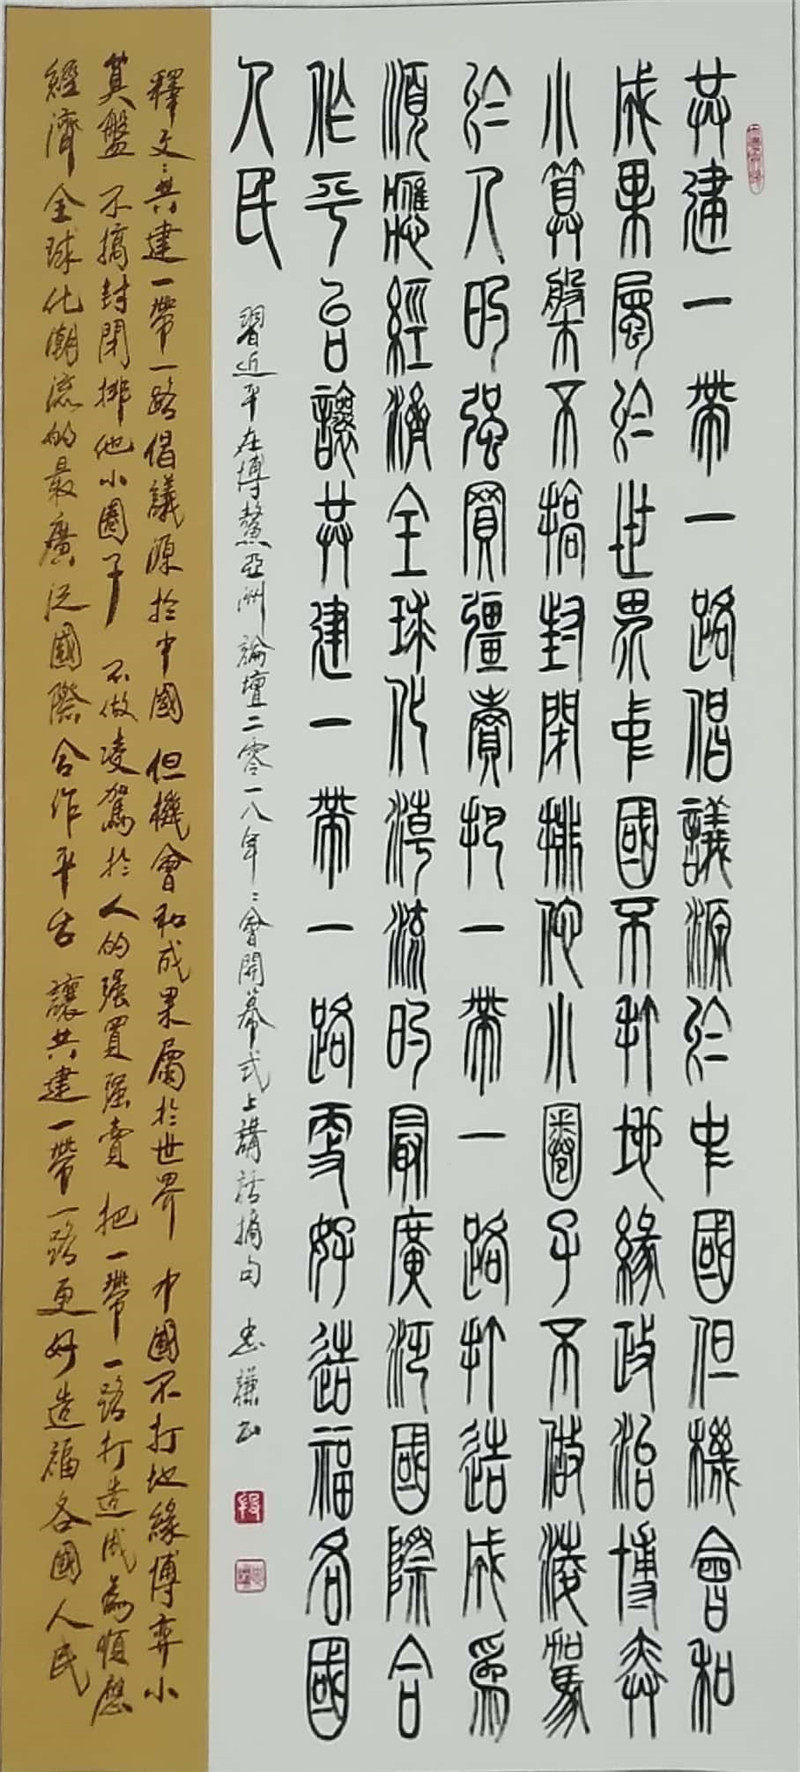 共建一帶一路倡議源於中國但機會和
成果屬於世界中國不打地緣政治博弈
小算槃不搞封閉排他小圈子不做淩駕
於人的强買彊賣把一帶一路打造成爲
順應經濟全球化潮流的最廣泛國際合
作平台讓共建一帶一路更好造福各國
人民
習近平在博鰲亞洲論壇二零一八年:會開幕式上講話摘句 忠謙书
段
釋文:共建一帶一路倡議源於中國 但機會和成果屬於世界 中國不打地緣博弈小
算盤 不搞封閉排他小圈子 不做凌駕於人的强買强賣 把一帶一路打造成為順應
經濟全球化潮流的最廣泛國際合作平台 讓共建一帶一路更好造福各國人民